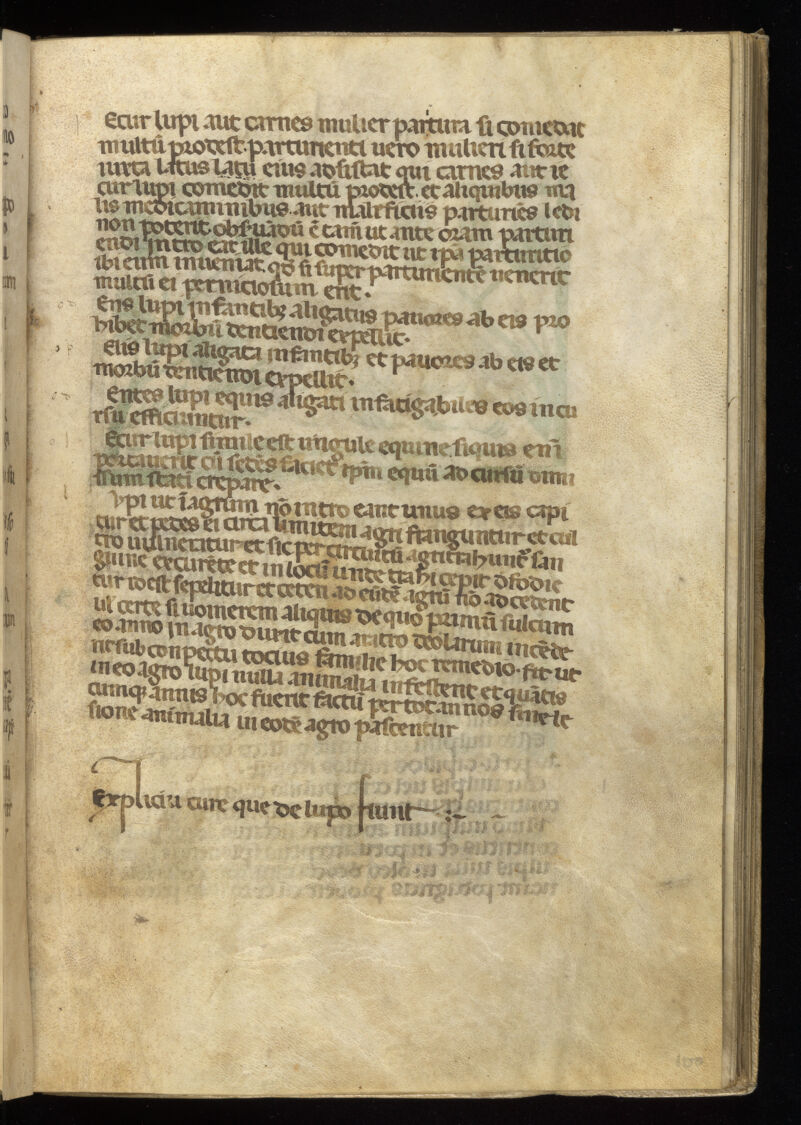 Ecur lupi aut carnes mulier partura si comedat
multū prodest. parturienti uero mulieri si forte
iuxta latus latū eius adsistat qui carnes aut ie
cur lupi comedit multū prodest. et aliquibus ma
lis medicaminibus. aut maleficiis parturiēs ledi
non poterit obseruādū ē tam̄ ut ante oram parturi
endi intro eat ille qui comedit ut ipa parturitio
ibi eum inueniat. qd si super parturientē uenerit
multū ei perniciosum erit.
Ens lupi infantibꝫ aligatus pauores ab eis pro
hibet morbū dentiendi expellit.
Elis lupi aligata infantibꝫ et pauores ab eis et
morbū dentiendi expellit.
Entes lupi equis aligati infatigabiles eos in cu
rsu efficiuntur.
Ecur lupi simile est ungule equine. siquis eni
pertauerit cū setēs faciet ipm equū ad cursū dimi
ssum stati crepare.
ypi ut ī agrum nō intro eant unus ex eis capi
tur et pedes ei circa limitem agri franguntur et cul
tro uulneratur et sic per circuitū agri trahunt san
guine excurēte et in locū unde trahi cepit defodie
tur totst sepelitur et ceteri ad eūdē agrū nō adcedent
ul certe si uomerem aliquis de quo primū sulcum
eo anno in agro duxit cum aratro deolarum incēde
rit sub conpectu tocius familie hoc remedio fit ut
in eo agro lupi nulla animalia infestent et quātis
cumqꝫ annis hoc fuerit factū per tot annos sine le
sione animalia in eodē agro pascentur
Expliciūt cure que de lupo fiunt